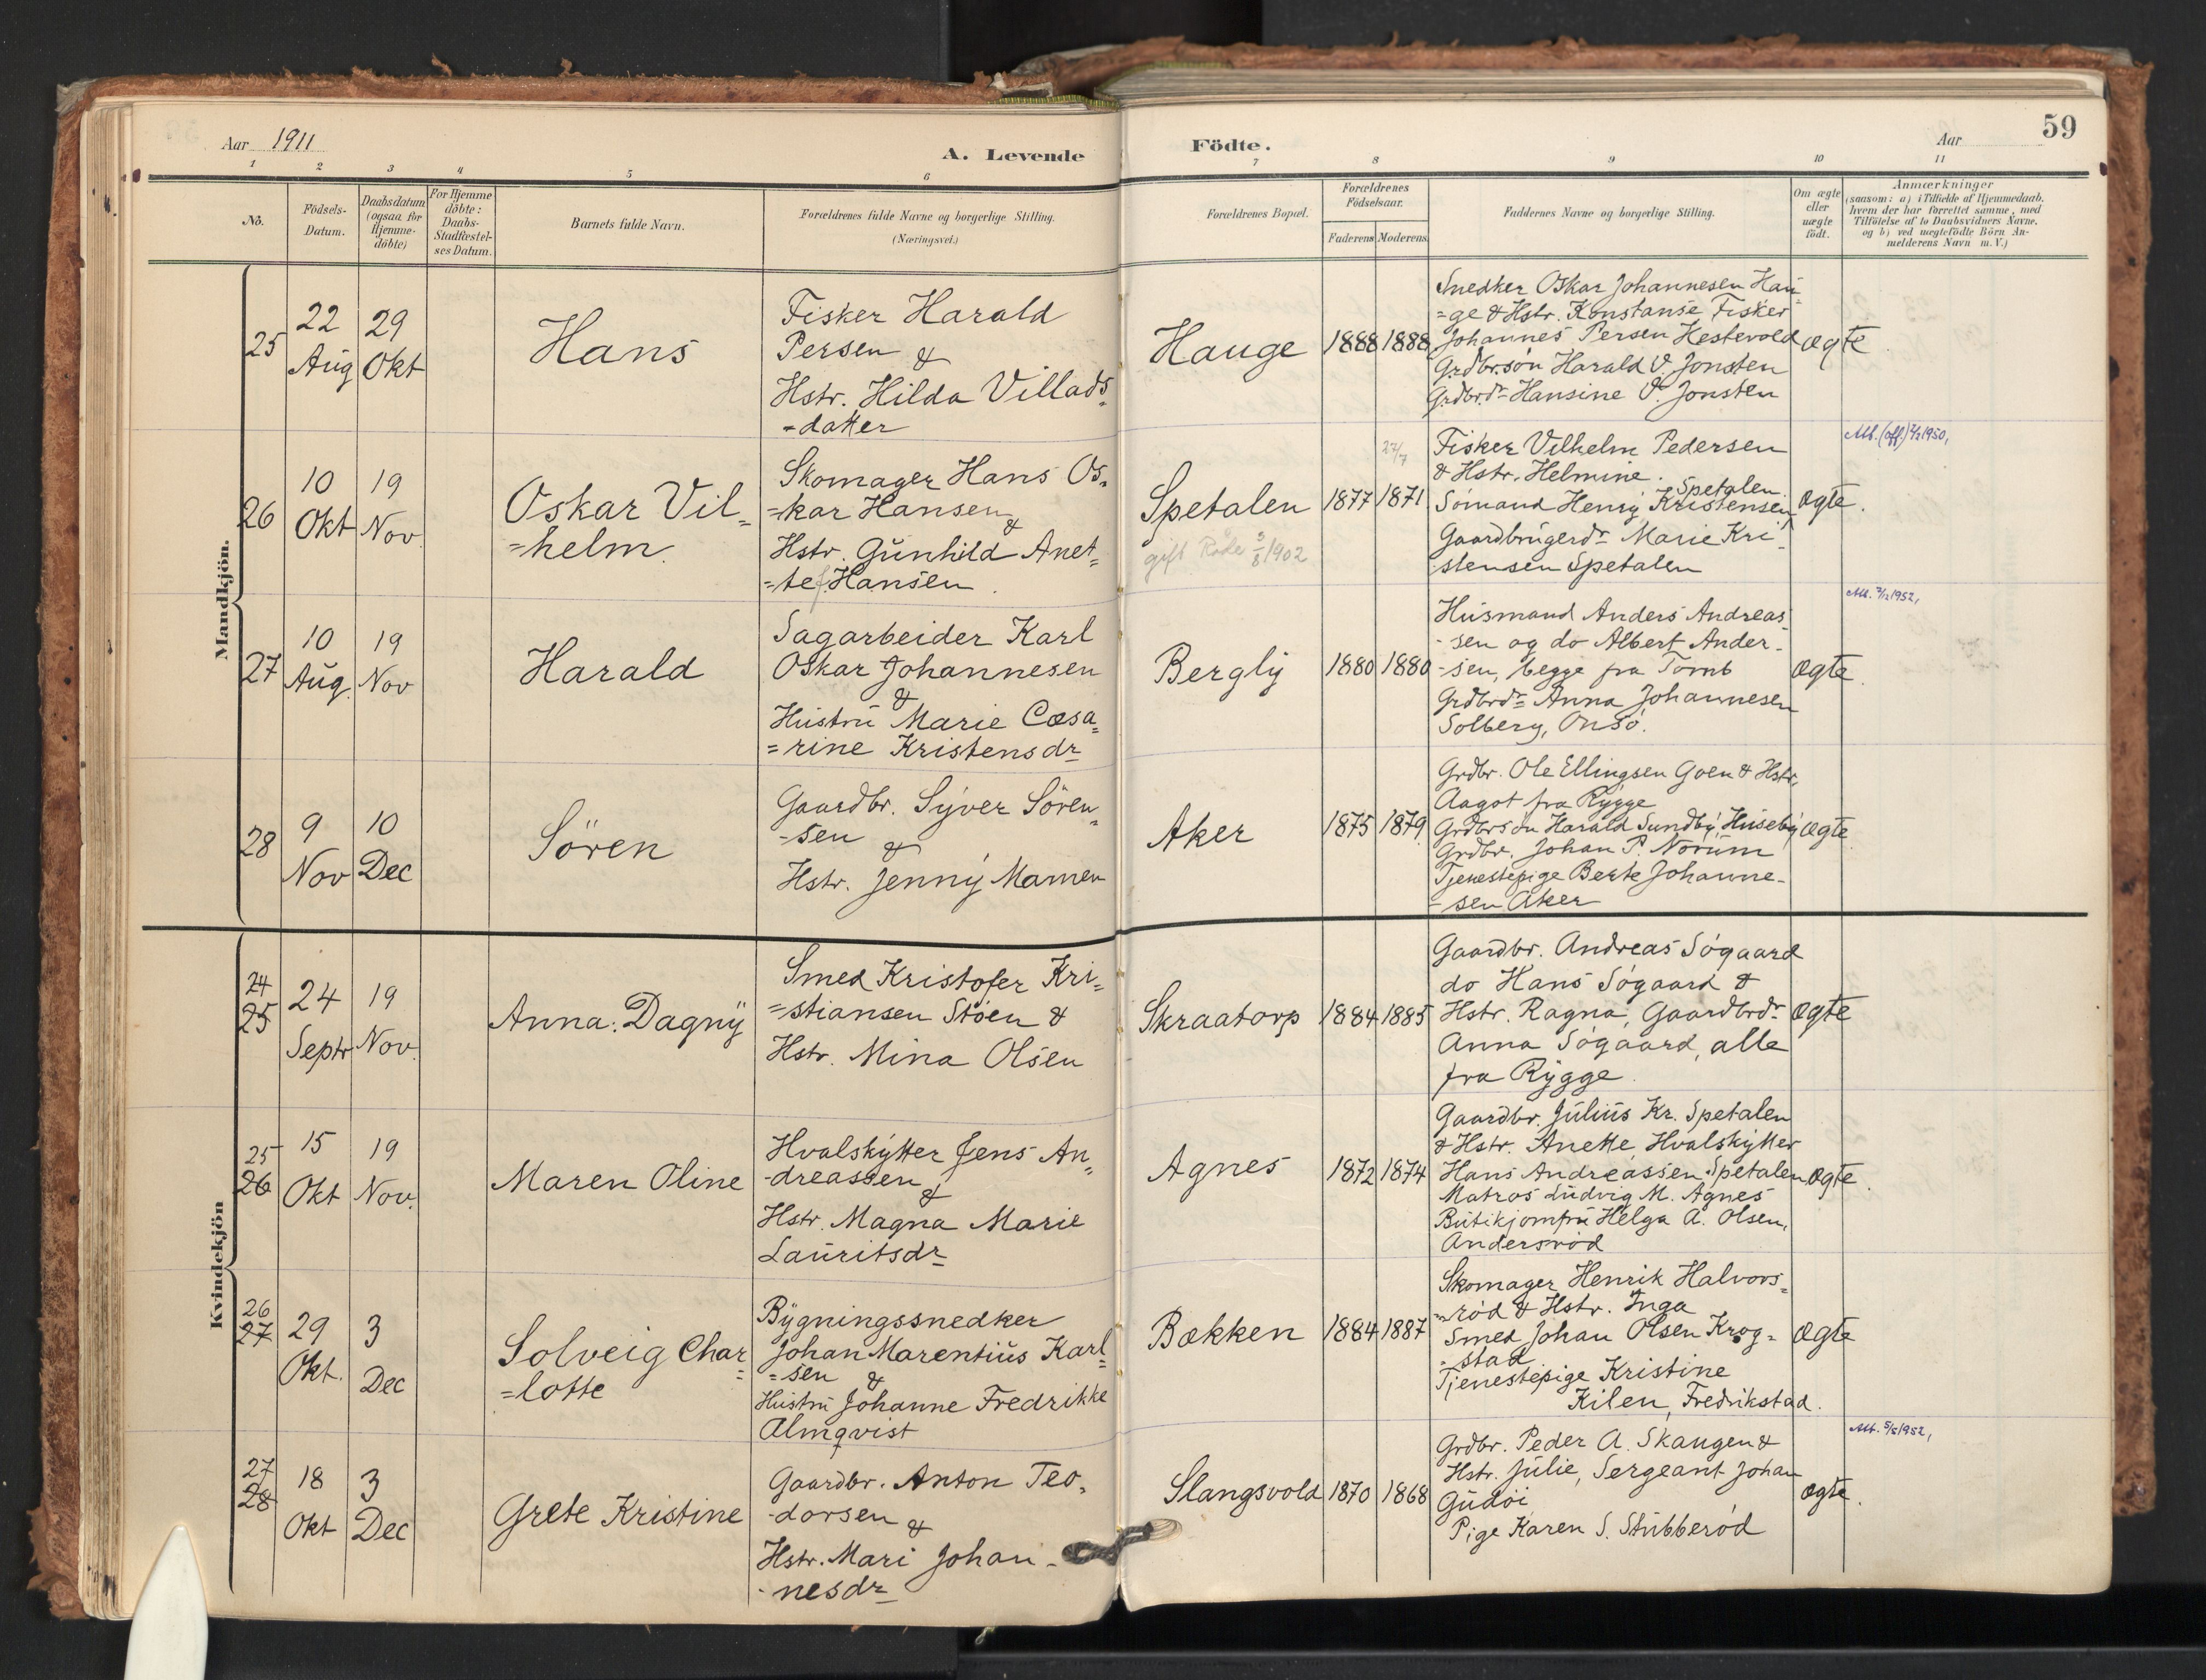 59
Aar 1911
A. Levende
Födte.
Aar
1 2 3 4 5 6 7 8 9 10 11
No.
Födsels-
Datum.
Daabsdatum
(ogsaa for
Hjemme-
döbte)
For Hjemme
döbte:
Daabs-
Stadfæstel-
ses Datum.
Barnets fulde Navn.
Forældrenes fulde Navne og borgerlige Stilling.
(Næringsvei.)
Forældrenes Bopæl.
Forældrenes
Födselsaar.
Faderens Moderens
Faddernes Navne og borgerlige Stilling.
Om ægte
eller
uægte
födt.
Anmærkninger
(saasom: a) i Tilfælde af Hjemmedaab,
hvem der har forrettet samme, med
Tilföielse af to Daabsvidners Navne,
og b) ved uægtefödte Börn An-
melderens Navn m. V.)
Mandkjön.
25
22
Aug
29
Okt
Hans
Fisker Harald
Persen &
Hstr. Hilda Villads=
=datter
Hauge
1888 1888
Snedker Oskar Johannesen Hau=
=ge & Hstr. Konstanse, Fisker
Johannes Persen Hestevold
Grdbr.søn Harald V. Jonsten
Grdbrdr Hansine V. Jonsten
ægte
26
10
Okt
19
Nov.
Oskar Vil=
=helm.
Skomager Hans Os=
=kar Hansen
&
Hstr. Gunhild Anet=
=te f. Hansen.
Spetalen
gift Råde 3/8 1902
27/7
1877 1871
Fisker Vilhelm Pedersen
& Hstr. Helmine. Spetalen.
Sömand Henry Kristensen
Gaardbrugerdr Marie Kri=
stensen Spetalen
ægte.
1950,
27
10
Aug.
19
Nov
Harald
Sagarbeider Karl
Oskar Johannesen
&
Hustru Marie Cæsa=
=rine Kristensdr
Bergly
1880 1880
Husmand Anders Andreas
-sen og do Albert Ander-
-sen, begge fra Tomb
Grdbrdr Anna Johannesen
Solberg, Onsö.
ægte.
1952,
28
9
Nov
10
Dec
Sören
Gaardbr. Syver Sören=
-sen &
Hstr. Jenny Mamen
Aker
1875 1879
Grdbr. Ole Ellingsen Goen & Hstr.
Aagot fra Rygge
Grdbrsön Harald Sundby, Huseby
Grdbr. Johan P. Norum
Tjenestepige Berte Johanne-
-sen Aker
ægte.
Kvindekjön
24
25
24
Septr
19
Nov.
Anna Dagny
Smed Kristofer Kri=
=stiansen Stöen &
Hstr. Mina Olsen
Skraatorp
1884 1885
Gaardbr. Andreas Sögaard
do Hans Sögaard &
Hstr. Ragna, Gaardbrdr
Anna Sögaard, alle
fra Rygge.
ægte
25
26
15
Okt
19
Nov.
Maren Oline
Hvalskytter Jens An=
-dreassen
&
Hstr. Magna Marie
Lauritsdr
Agnes
1872 1874
Gaardbr. Julius Kr. Spetalen
& Hstr. Anette, Hvalskytter
Hans Andreassen Spetalen
Matros Ludvig M. Agnes
Butikjomfru Helga A. Olsen,
Andersröd
ægte.
26
27
29
Okt.
3
Dec
Solveig Char=
=lotte
Bygningssnedker
Johan Marentius Karl=
=sen &
Hustru Johanne Fredrikke
Almqvist
Bækken
1884 1887
Skomager Henrik Halvors=
=röd & Hstr. Inga
Smed Johan Olsen Krog=
-stad
Tjenestepige Kristine
Kilen, Fredrikstad.
ægte
27
28
18
Okt
3
Dec
Grete Kristine
Gaardbr. Anton Teo=
-dorsen &
Hstr. Mari Johan-
-nesdr
Slangsvold
1870 1868
Grdbr. Peder A. Skaugen &
Hstr. Julie, Sergeant Johan
Gudöi
Pige Karen S. Stubberöd
ægte.
1952,